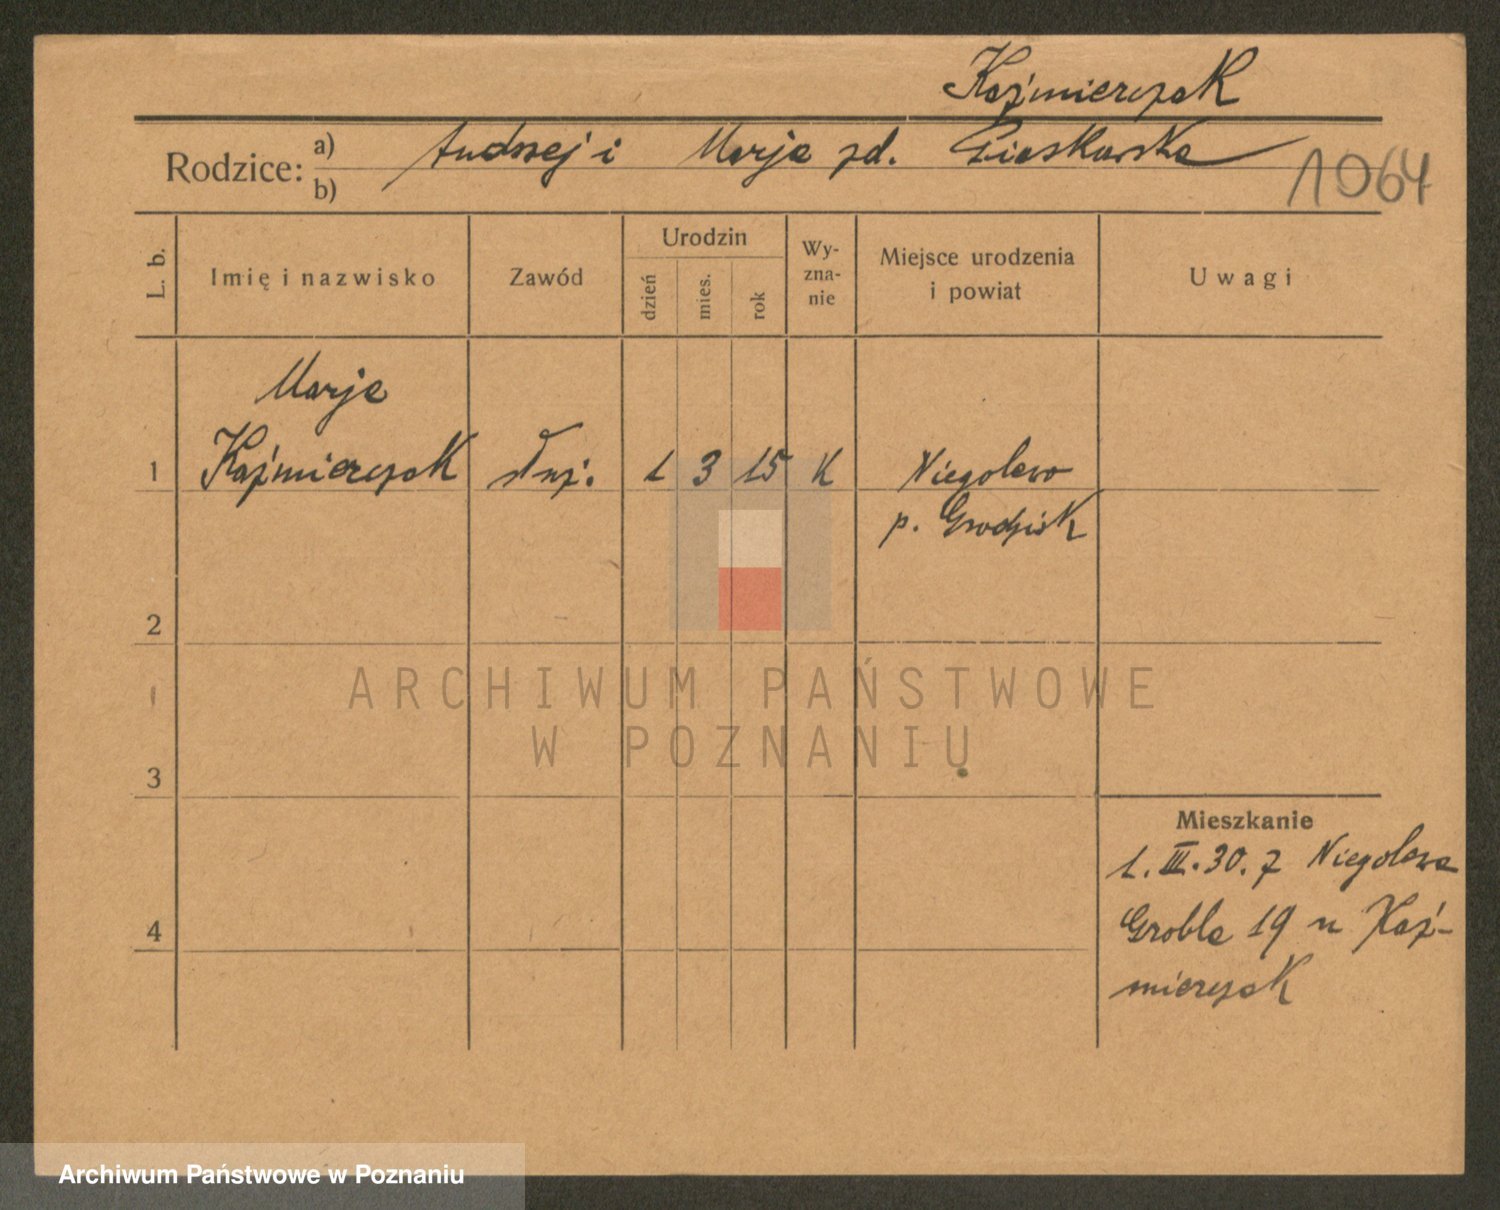 Kaźmierczak
Rodzice: a) Andrzej i Marja zd.
b)
1064
L. b.
Imię i nazwisko
Zawód
Urodzin
dzień
mies.
rok
Wy-
zna-
nie
Miejsce urodzenia
i powiat
Uwagi
Marja
1 Kaźmierczak służ. 1 3 15 K Niegolewo
p. Grodzisk
2
3
4
Mieszkanie
1. III. 30. z Niegolewa
Grobla 19 u Kaź-
mierczak
ARCHIWUM PAŃSTWOWE
W POZNANIU
Archiwum Państwowe w Poznaniu